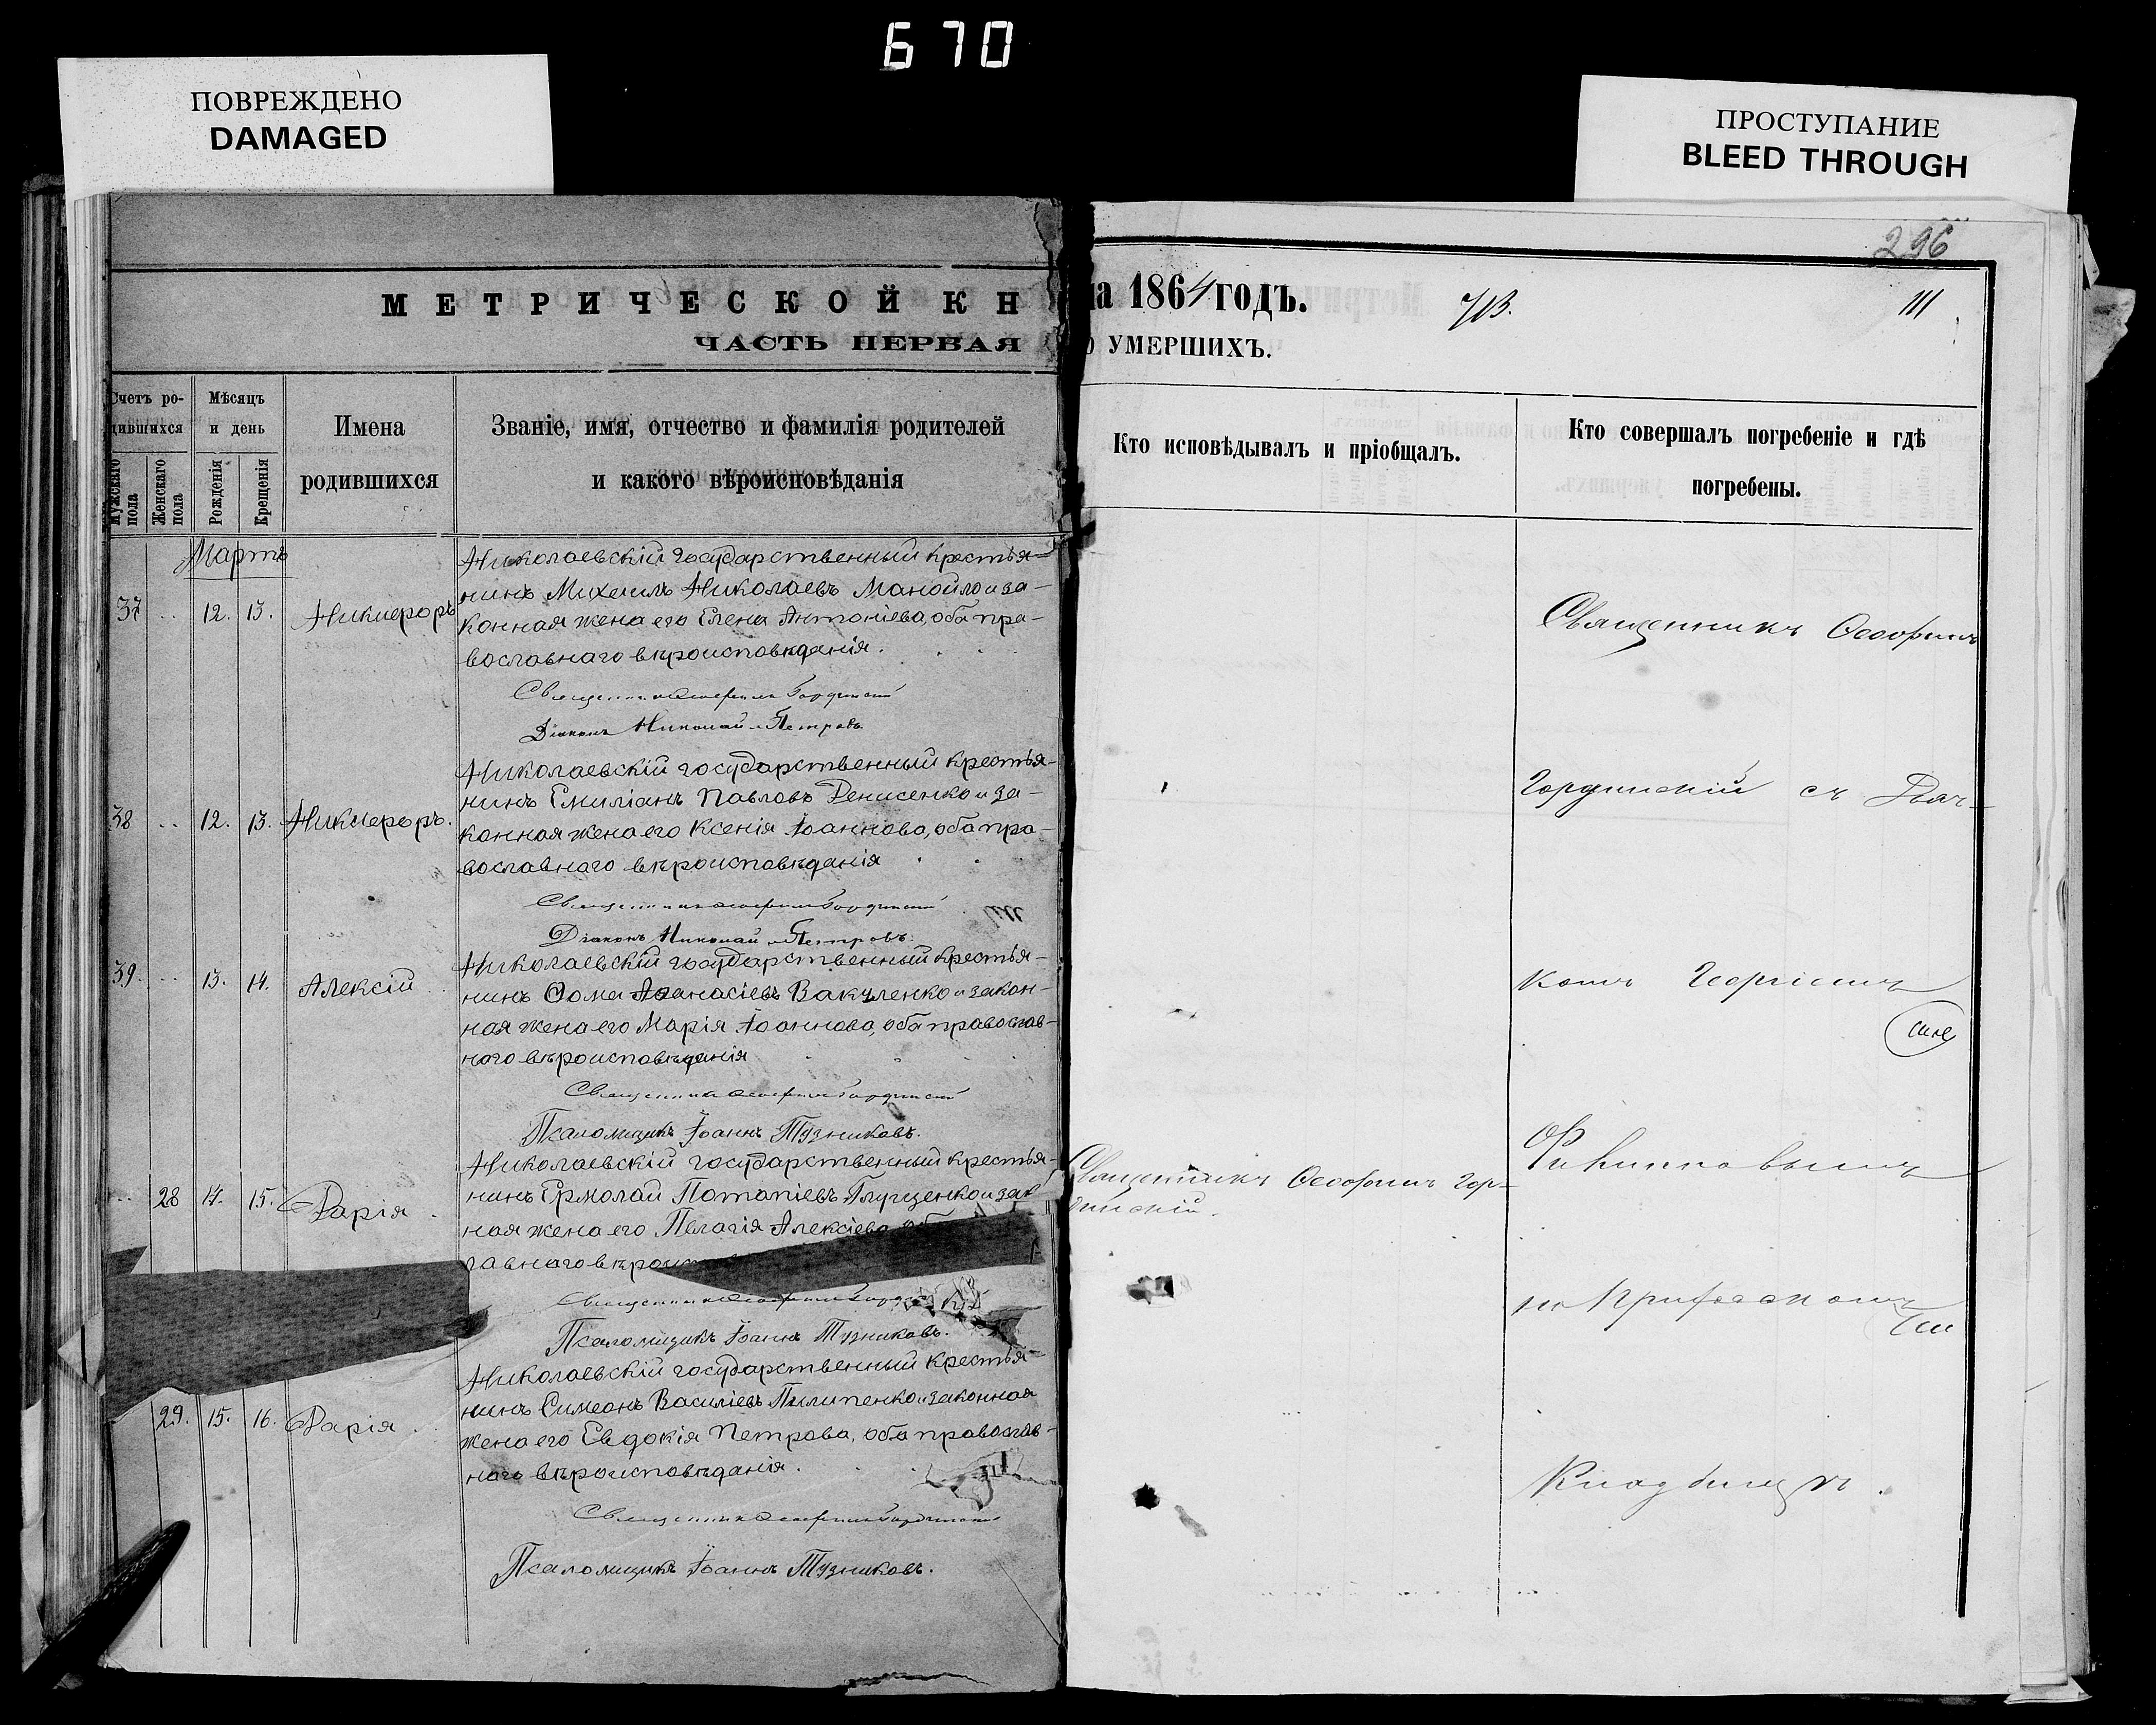 670
ПОВРЕЖДЕНО
DAMAGED
ПРОСТУПАНИЕ
BLEED THROUGH
МЕТРИЧЕСКОЙ КН
ЧАСТЬ ПЕРВАЯ
Счетъ ро-
дившихся
Мужскаго пола
Женскаго пола
Мѣсяцъ
и день
Рожденія
Крещенія
Имена
родившихся
Званіе, имя, отчество и фамилія родителей
и какого вѣроисповѣданія
Мартъ
37 .. 12. 13. Никифоръ
Николаевскій государственный крестья-
нинъ Михаилъ Николаевъ Манойло и за-
конная жена его Елена Антоніева, оба пра-
вославнаго вѣроисповѣданія.
Священникъ Гординскій
Діаконъ Николай Петровъ
38 .. 12. 13. Никифоръ.
Николаевскій государственный крестья-
нинъ Емиліанъ Павловъ Денисенко и за-
конная жена его Ксенія Іоаннова, оба пра-
вославнаго вѣроисповѣданія
Священникъ Гординскій
Діаконъ Николай Петровъ.
39. .. 13. 14. Алексій
Николаевскій государственный крестья-
нинъ Ѳома Аѳанасіевъ Вакуленко и закон-
ная жена его Марія Іоаннова, оба православ-
наго вѣроисповѣданія
Священникъ Гординскій
Псаломщикъ Іоаннъ Тузниковъ.
.. 28 14. 15. Дарія.
Николаевскій государственный крестья-
нинъ Ермолай Потапіевъ Глущенко и зак
ная жена его Пелагія Алексіева
лавнаго вѣроисп
Священникъ
Псаломщикъ Іоаннъ Тузниковъ.
29. 15. 16. Дарія.
Николаевскій государственный крестья-
нинъ Симеонъ Василіевъ Пилипенко и законная
жена его Евдокія Петрова, оба православ-
наго вѣроисповѣданія.
Священникъ Гординскій
Псаломщикъ Іоаннъ Тузниковъ.
296
на 1864 годъ.
713.
111
О УМЕРШИХЪ.
Кто исповѣдывалъ и пріобщалъ.
Кто совершалъ погребеніе и гдѣ
погребены.
Священникъ
Гординскій съ Дьяч-
комъ Георгіемъ
Филипповымъ
Священникъ Гор-
динскій.
на Приходскомъ
Кладбищѣ.